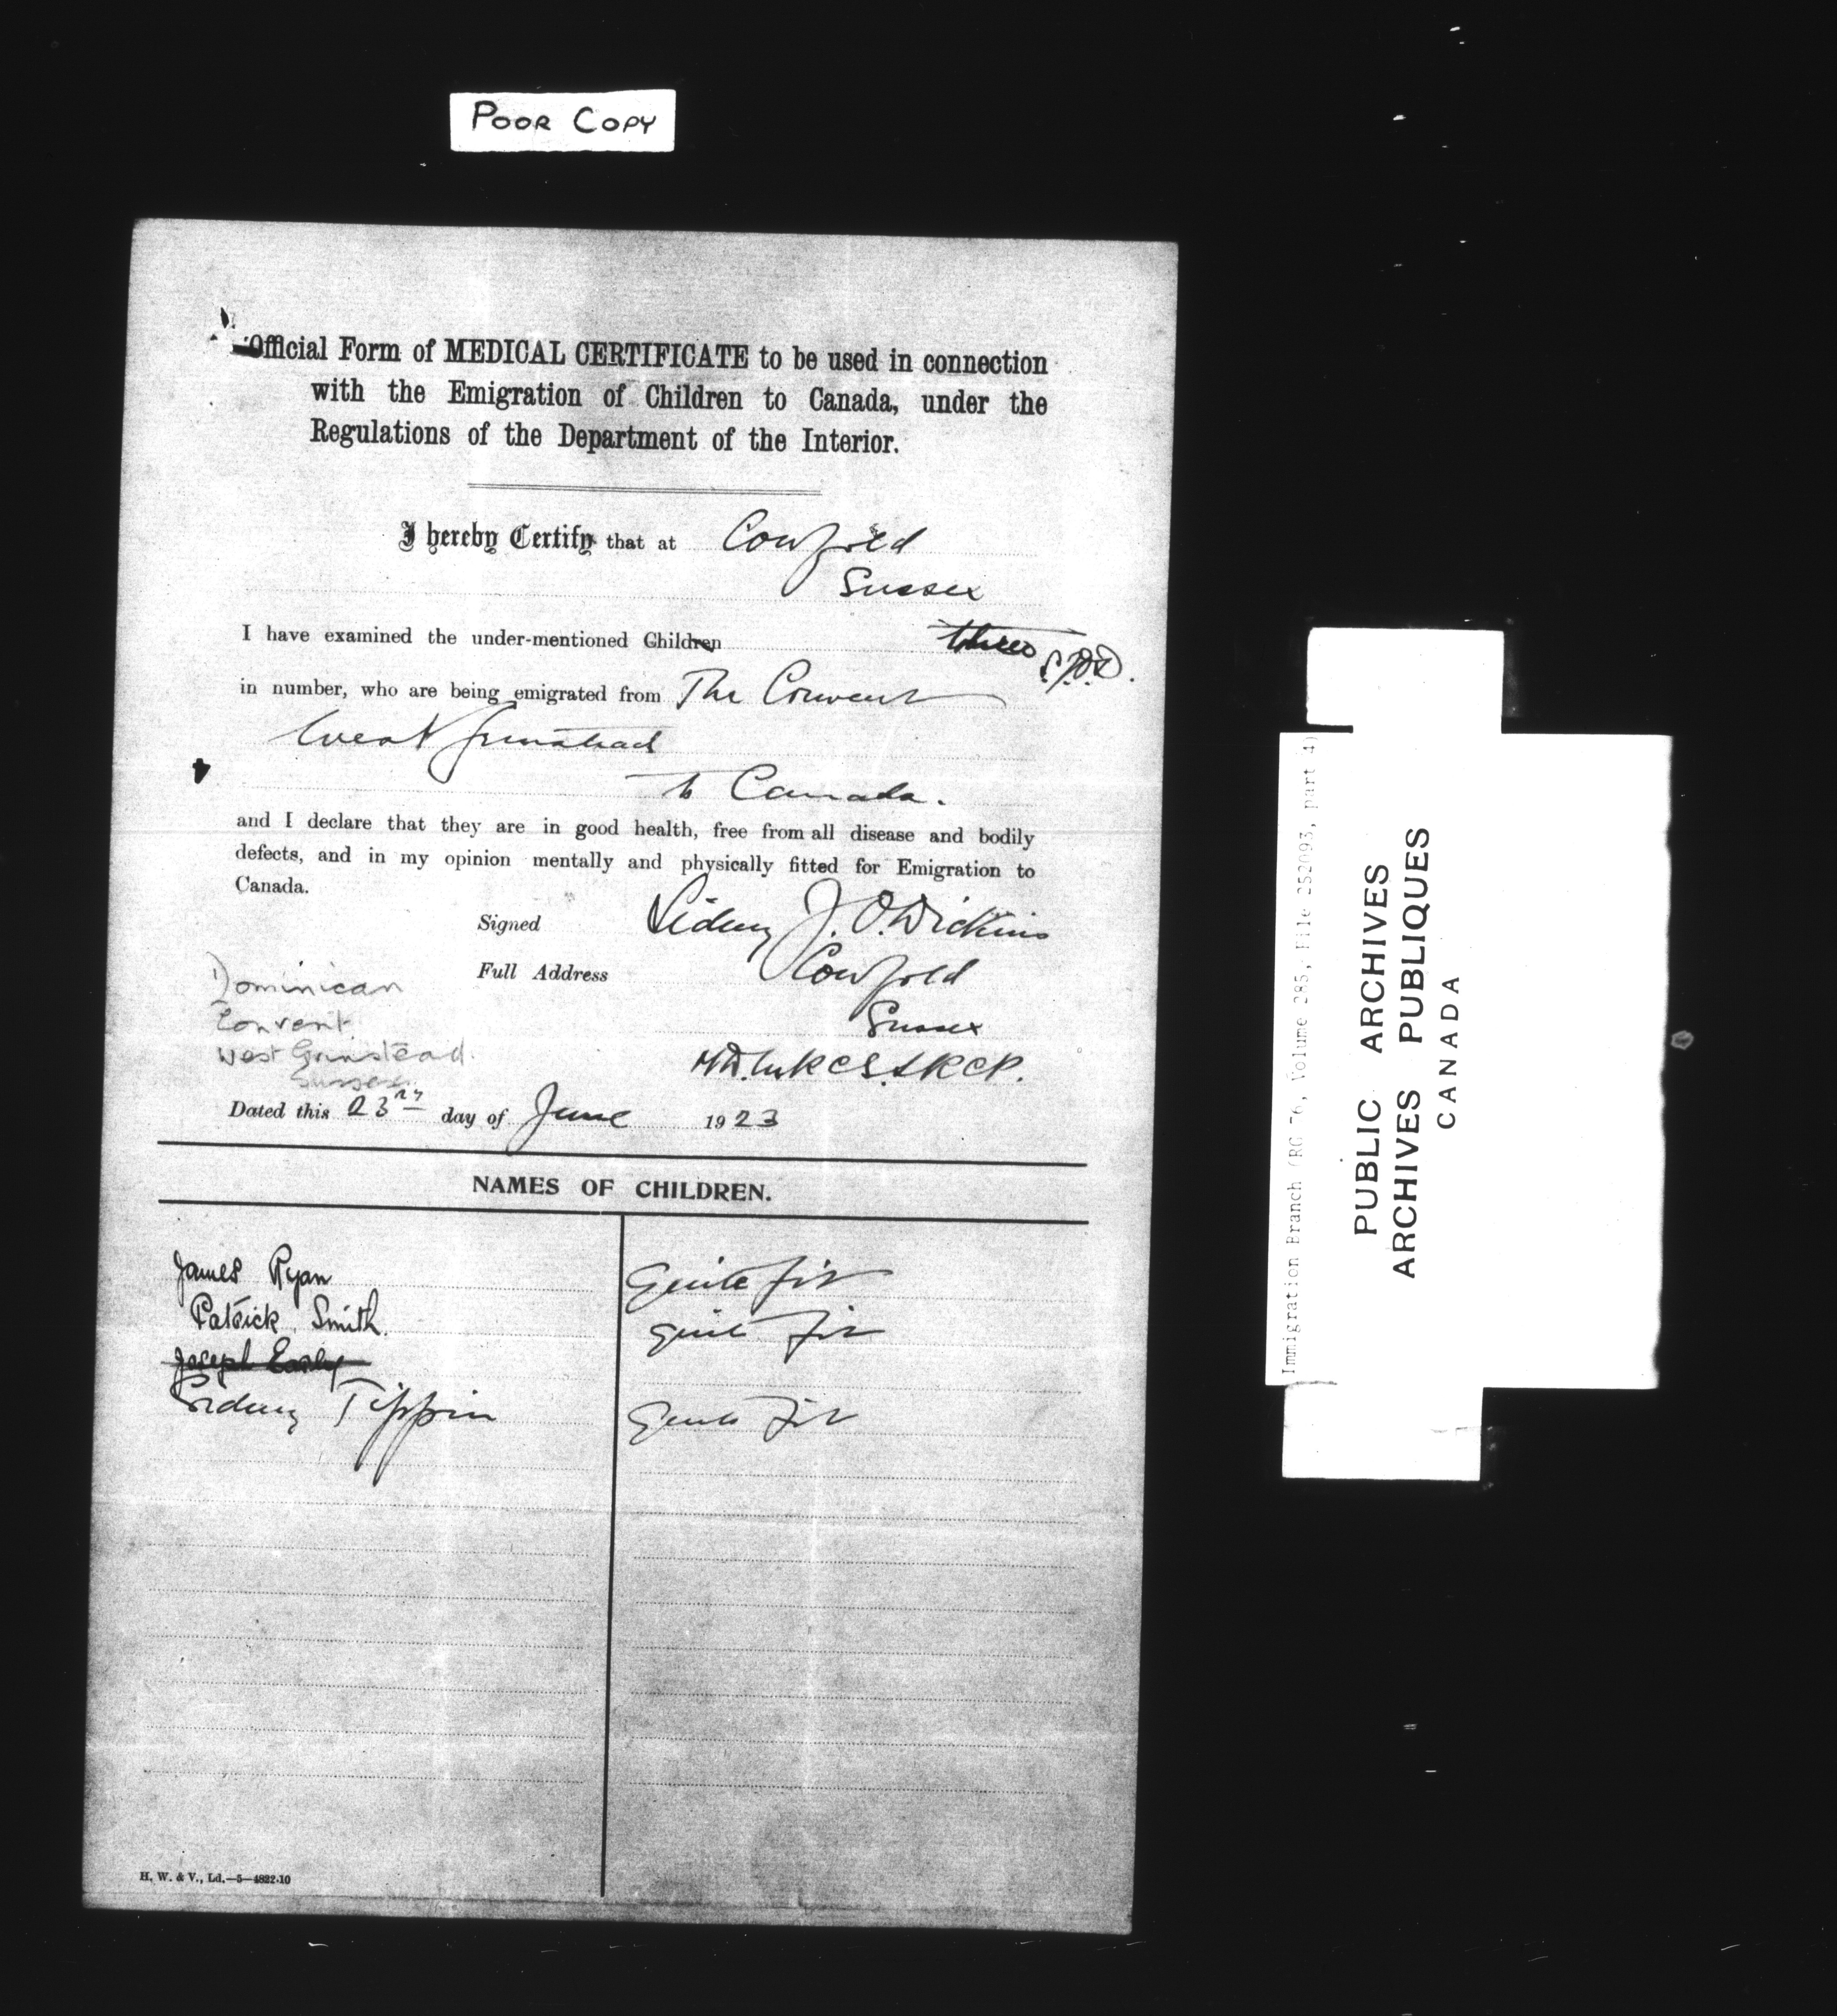 POOR COPY
Official Form of MEDICAL CERTIFICATE to be used in connection
with the Emigration of Children to Canada, under the
Regulations of the Department of the Interior.
I hereby Certify that at Cowfold
Sussex
I have examined the under-mentioned Children three
in number, who are being emigrated from The Convent
West Grinstead
to Canada.
and I declare that they are in good health, free from all disease and bodily
defects, and in my opinion mentally and physically fitted for Emigration to
Canada.
Signed Sidney J. O. Dickins
Full Address Cowfold
Sussex
M.D. M.R.C.S. L.R.C.P.
Dominican
Convent
West Grinstead.
Sussex.
Dated this 23rd day of June 1923
NAMES OF CHILDREN.
James Ryan Quite fit
Patrick Smith. quite fit
Joseph Earley
Sidney Tippin Quite fit
H. W. & V., Ld.—5—4822-10
Immigration Branch (RG 76, Volume 285, File 252093, part 4)
PUBLIC ARCHIVES
ARCHIVES PUBLIQUES
CANADA